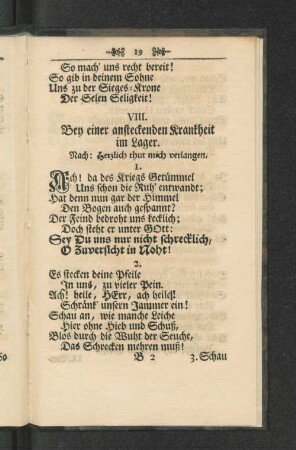 19
So mach' uns recht bereit!
So gib in deinem Sohne
Uns zu der Sieges-Krone
Der Selen Seligkeit!
VIII.
Bey einer ansteckenden Krankheit
im Lager.
Nach: Herzlich thut mich verlangen.
1.
Ach! da des Kriegs Getümmel
Uns schon die Ruh' entwandt;
Hat denn nun gar der Himmel
Den Bogen auch gespannt?
Der Feind bedroht uns kecklich;
Doch steht er unter GOtt:
Sey Du uns nur nicht schrecklich,
O Zuversicht in Noht!
2.
Es stecken deine Pfeile
In uns, zu vieler Pein.
Ach! heile, HErr, ach heile!
Schränk' unsern Jammer ein!
Schau an, wie manche Leiche
Hier ohne Hieb und Schuß,
Blos durch die Wuht der Seuche,
Das Schrecken mehren muß!
B 2 3. Schau